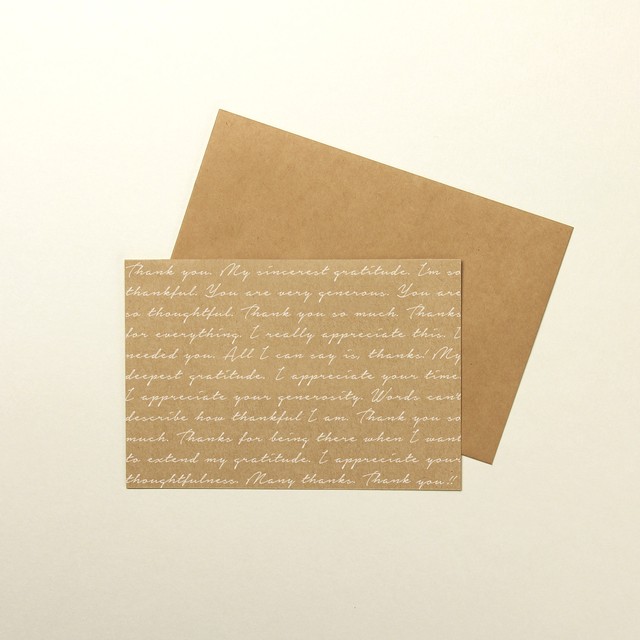 Thank you. My sincerest gratitude. I'm so
thankful. You are very generous. You are
so thoughtful. Thank you so much. Thanks
for everything. I really appreciate this. I
needed you. All I can say is, thanks! My
deepest gratitude. I appreciate your time.
I appreciate your generosity. Words can't
describe how thankful I am. Thank you
much. Thanks for being there when I want
to extend my gratitude. I appreciate your
thoughtfulness. Many thanks. Thank you!!